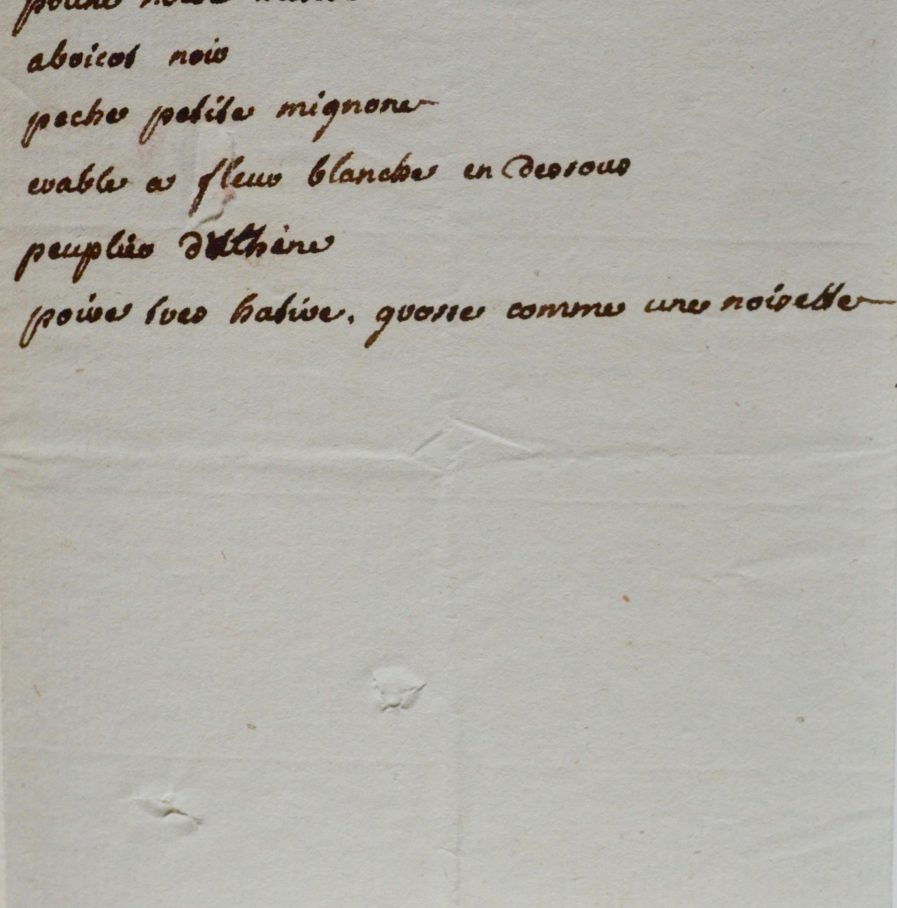 abricot noir
peche petite mignone
erable a fleur blanche en dessous
peuplier d'athène
poire tres hative, grosse comme une noisette